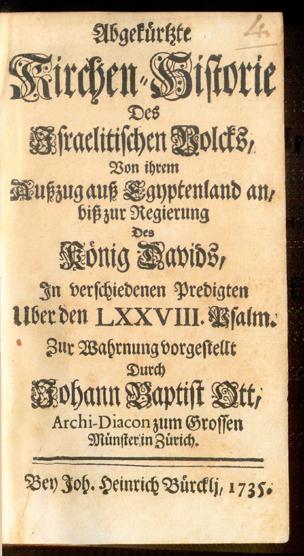 4.
Abgekürtzte
Kirchen-Historie
Des
Israelitischen Volcks,
Von ihrem
Außzug auß Egyptenland an,
biß zur Regierung
Des
König Davids,
In verschiedenen Predigten
Uber den LXXVIII. Psalm.
Zur Wahrnung vorgestellt
Durch
Johann Baptist Ott,
Archi-Diacon zum Grossen
Münster in Zürich.
Bey Joh. Heinrich Bürcklj, 1735.